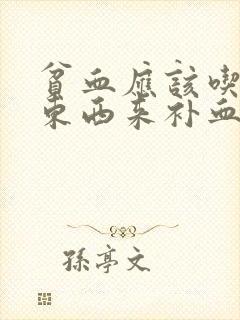 貧血應該喫
東西來补血
孫亭文